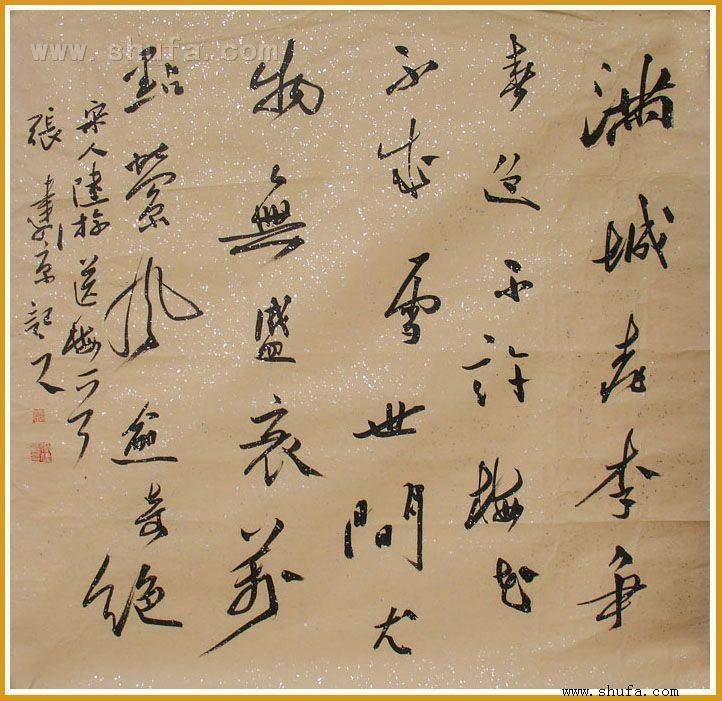 滿城桃李爭
春色不許梅花
不成雪世間尤
物無盛衰萬
點縈風愈奇絕
宋人陸游送梅
張 京記
www.shufa.com
www.shufa.com